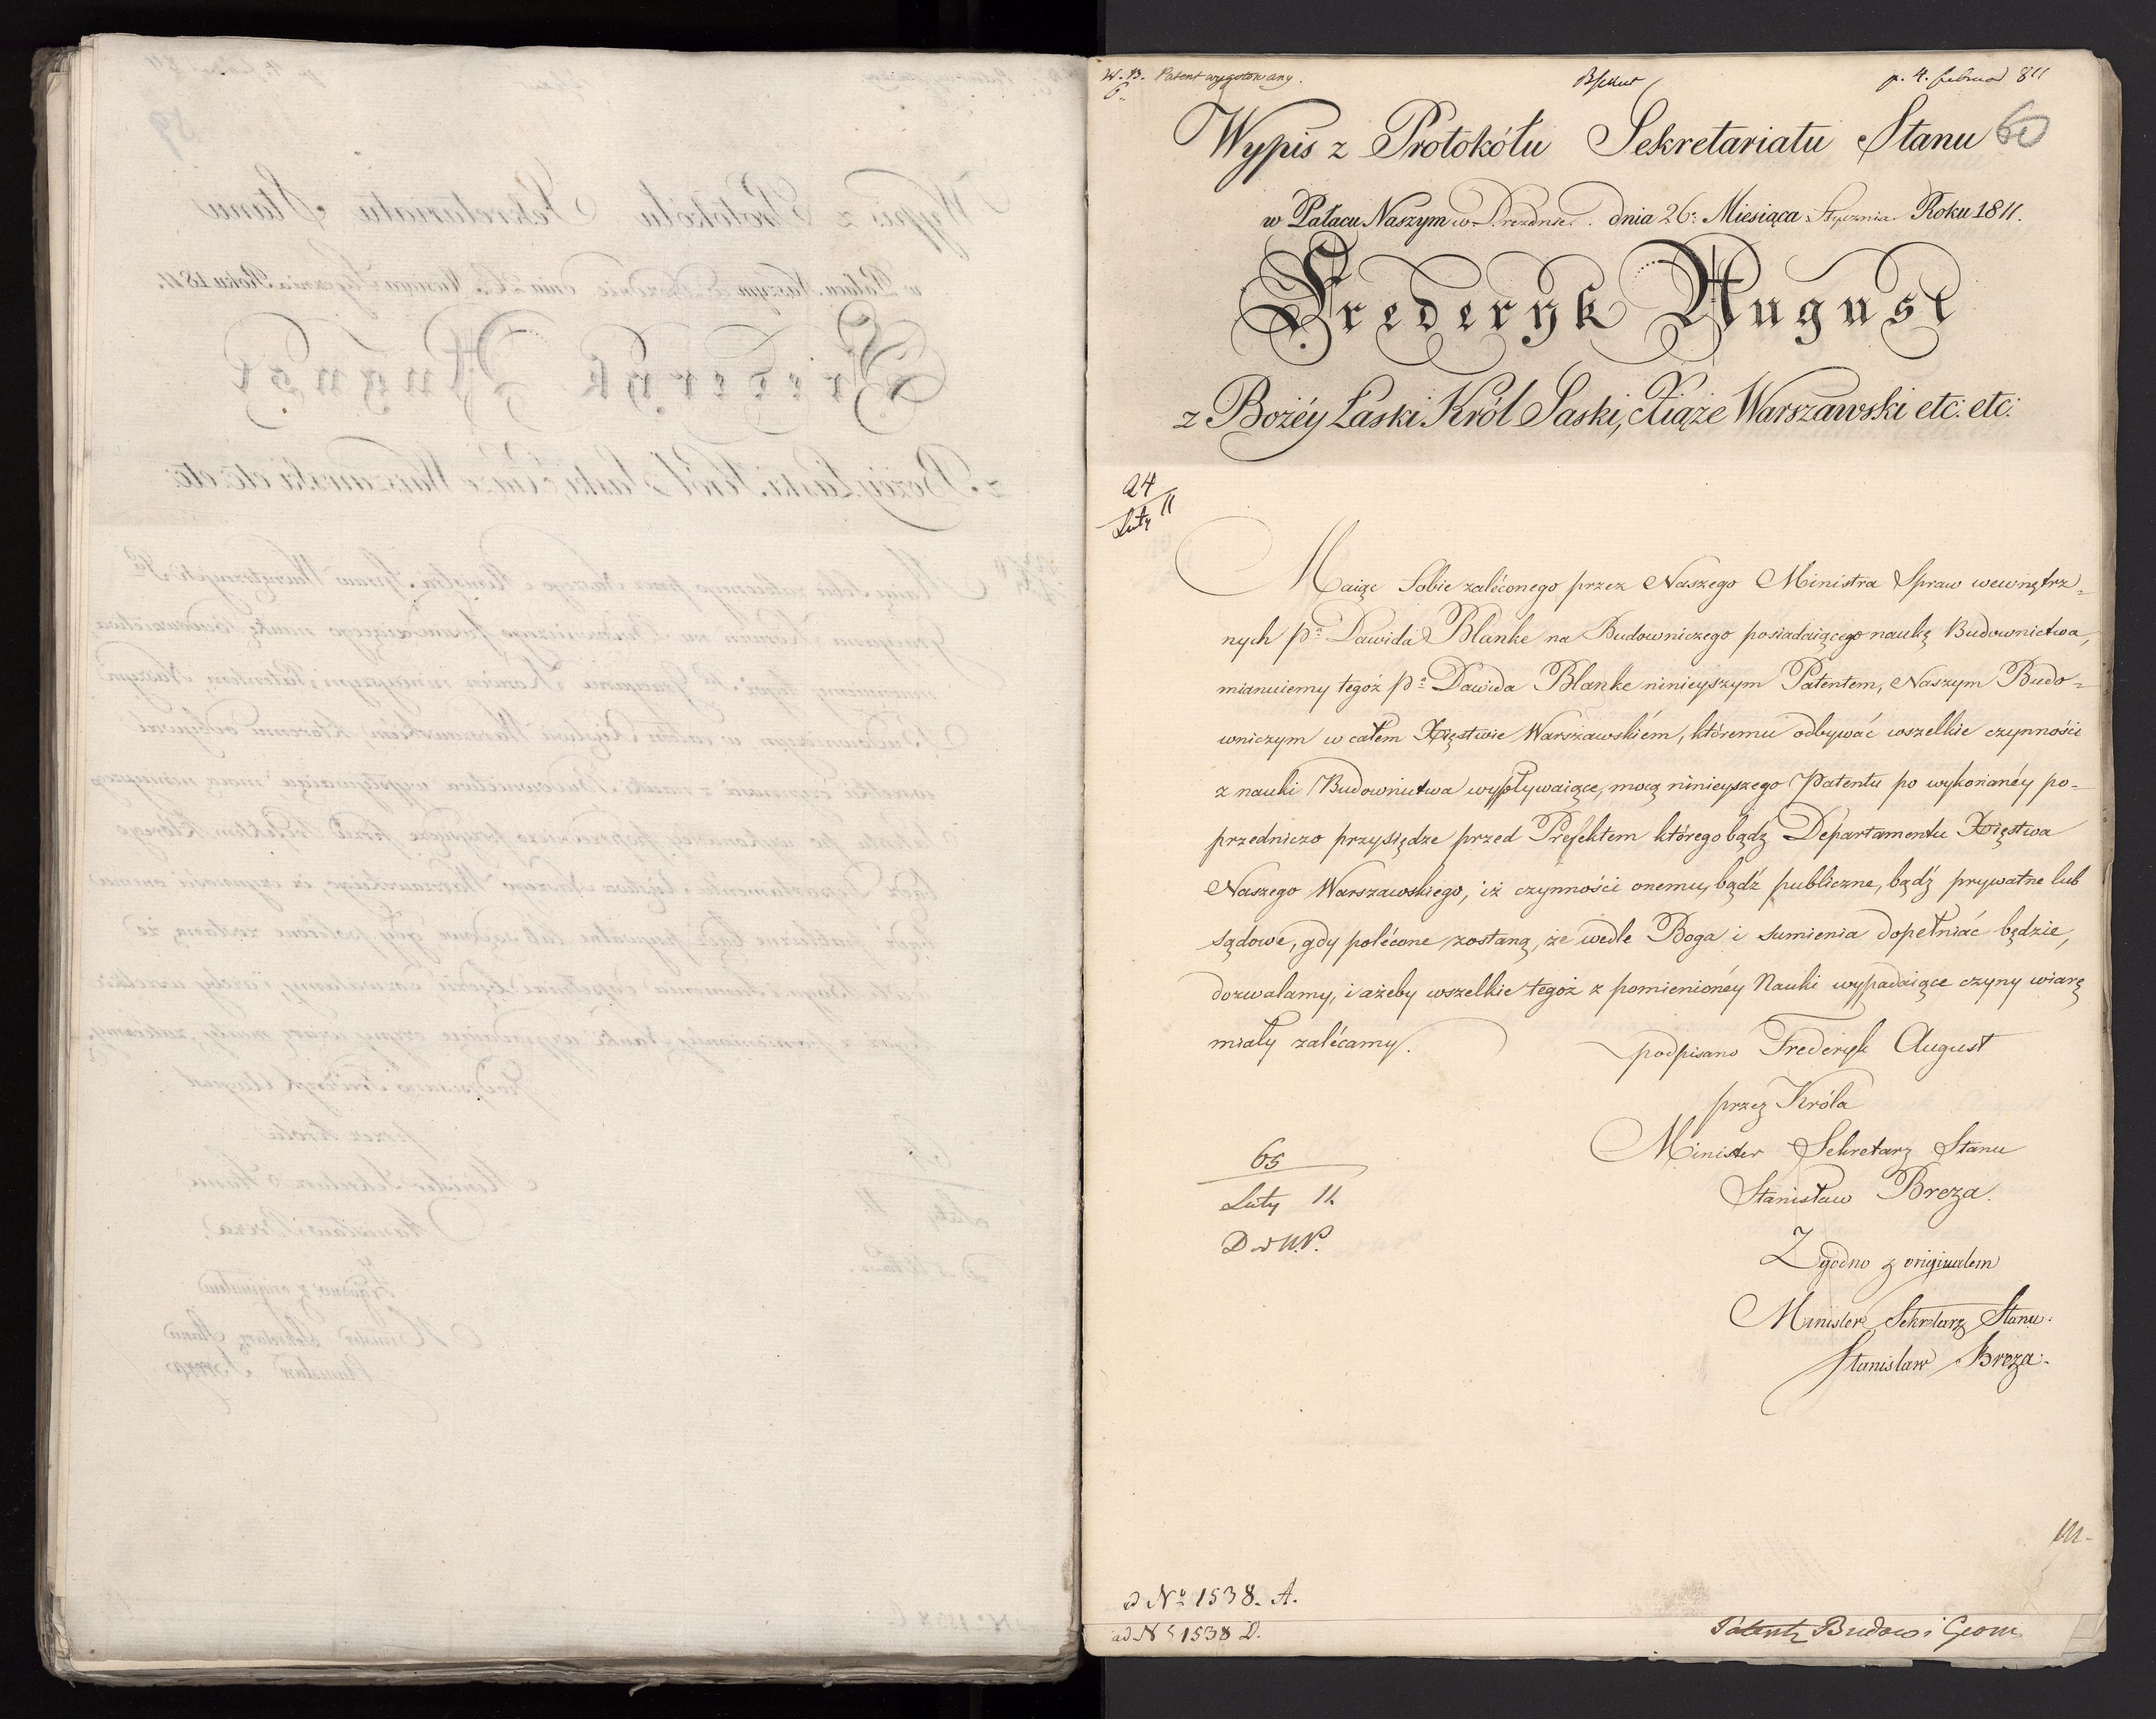 W. 13. Patent wygotowany.
p. 4. februar 811
6
Wypis z Protokółu Sekretariatu Stanu 60
w Pałacu Naszym w Dreznie. dnia 26. Miesiąca Stycznia Roku 1811.
Frederyk August
z Bożéy Łaski Król Saski, Xiąże Warszawski etc: etc:
24
Luty 11
Maiąc Sobie zaléconego przez Naszego Ministra Spraw wewnętrz=
nych Pa Dawida Blanke na Budowniczego posiadaiącego naukę Budownictwa,
mianuiemy tegóż Pa Dawida Blanke ninieyszym Patentem, Naszym Budo=
wniczym w całem Xięstwie Warszawskiém, któremu odbywać wszelkie czynności
z nauki Budownictwa wypływaiące, mocą ninieyszego Patentu po wykonanéy po=
przedniczo przysiędze przed Prefektem którego bądź Departamentu Xięstwa
Naszego Warszawskiego, iż czynności onemu, bądź publiczne, bądź prywatne lub
sądowe, gdy polécone zostaną, że wedle Boga i sumienia dopełniać będzie,
dozwalamy, i ażeby wszelkie tegoż z pomienionéy Nauki wypadaiące czyny wiarę
miały zalécamy.
podpisano Frederyk August
przez Króla
Minister Sekretarz Stanu
Stanisław Breza.
65
Luty 11.
Zgodno z originałem
Minister Sekretarz Stanu.
Stanisław Breza.
ad No 1538. A.
ad N 1538 D.
Patenta Budow i Geom